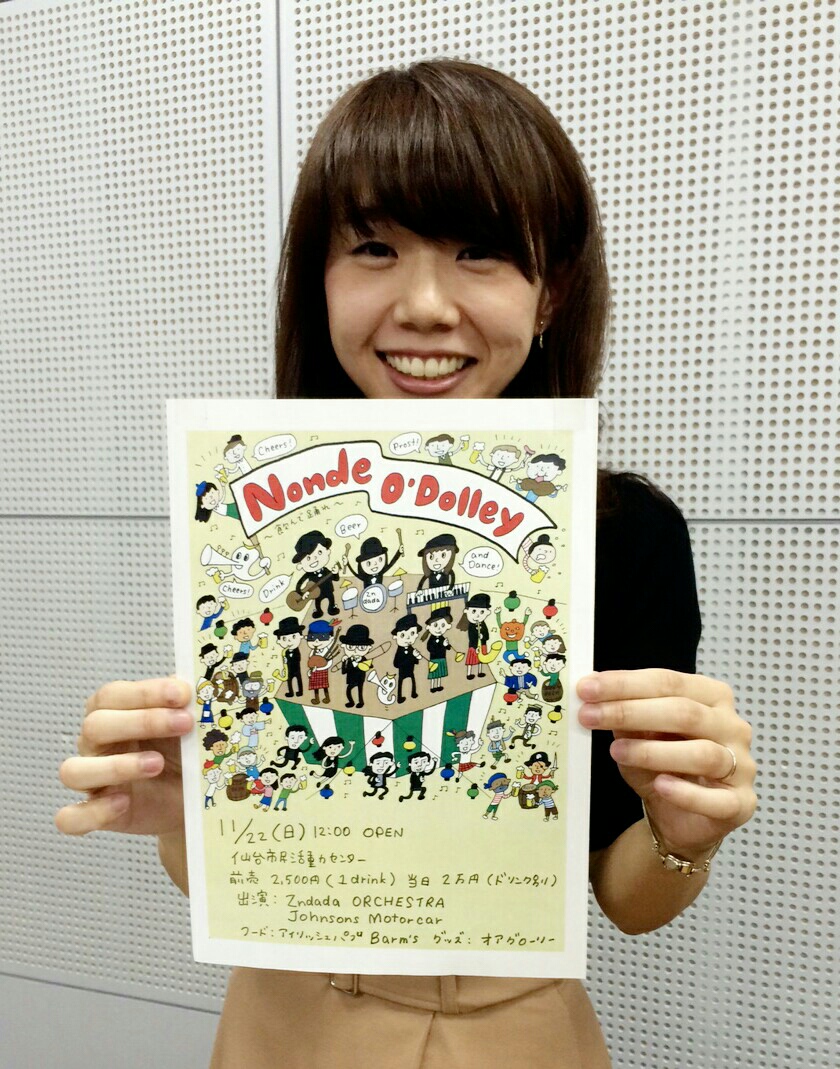 Cheers!
Prost!
Nonde O'Dolley
～飲んで踊れ～
Beer
and Dance!
Cheers!
Drink
Zn dada
11/22(日) 12:00 OPEN
仙台市民活動センター
前売 2,500円(1drink) 当日 2万円(ドリンク別り)
出演: Zndada ORCHESTRA
Johnsons Motorcar
フード: アイリッシュパブ Barm's グッズ: オアグローリー